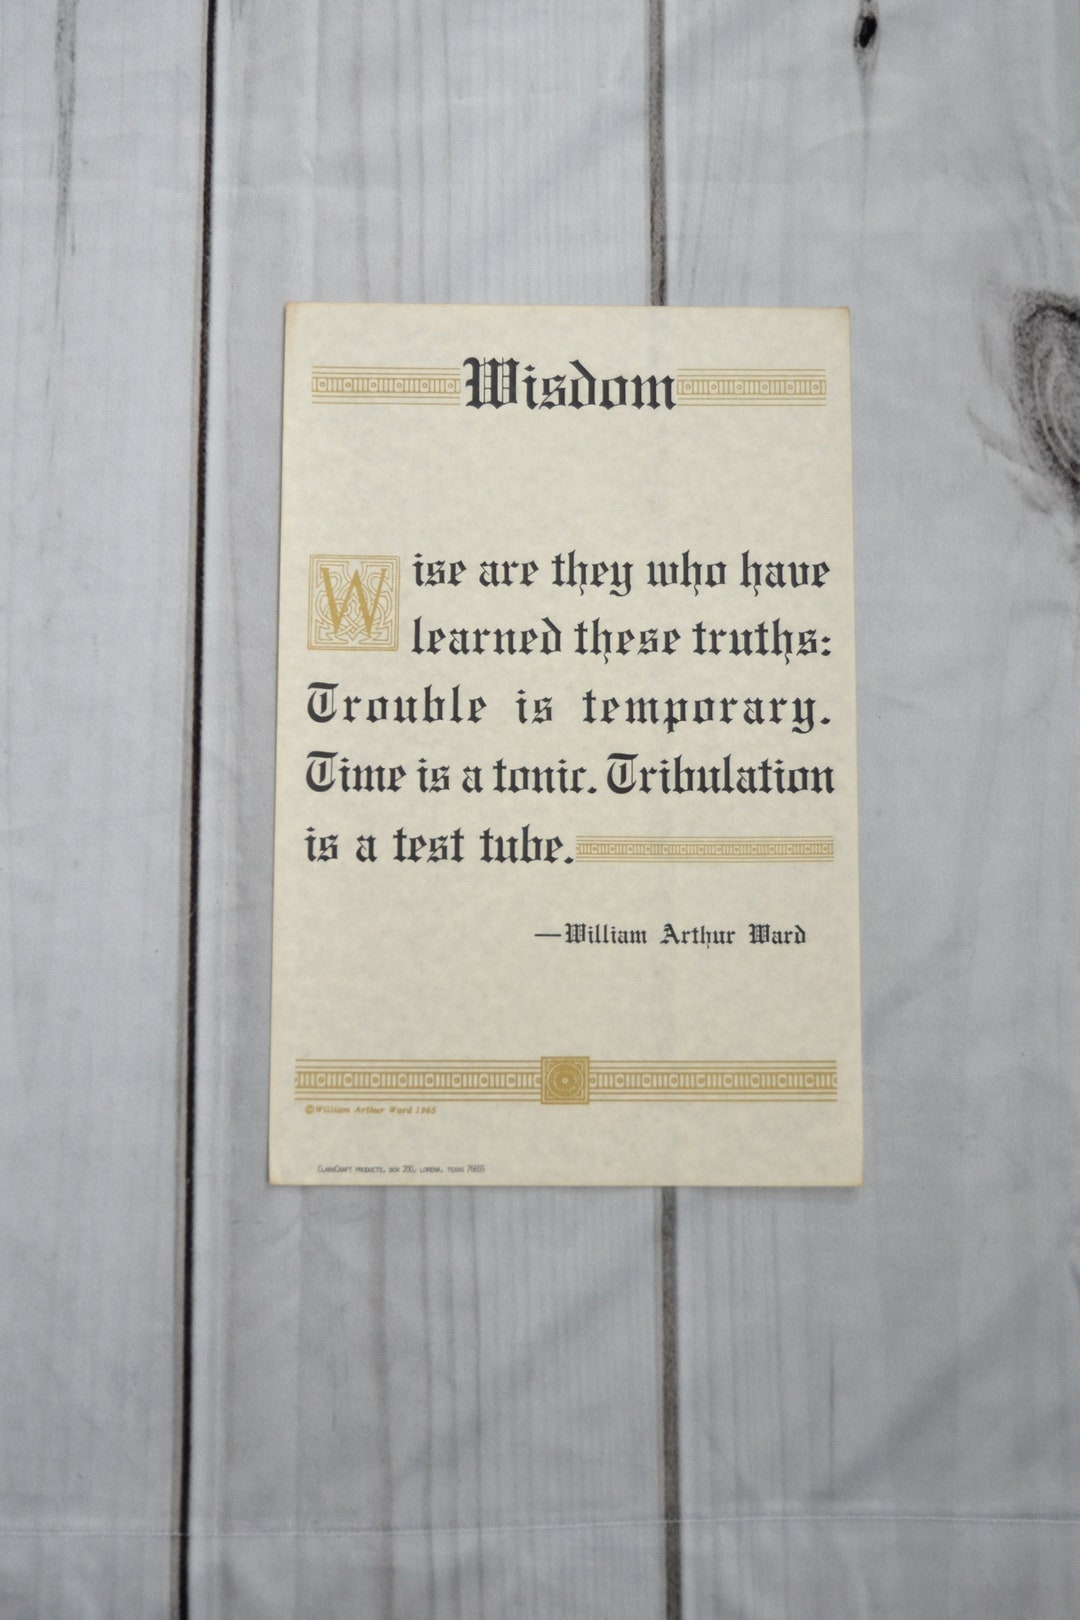 Wisdom
Wise are they who have
learned these truths:
Trouble is temporary.
Time is a tonic. Tribulation
is a test tube.
—William Arthur Ward
©William Arthur Ward 1965
ClarkCraft products, box 200, lorena, texas 76655